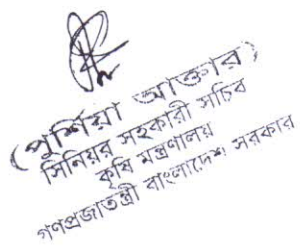 (পুর্শিয়া আক্তার)
সিনিয়র সহকারী সচিব
কৃষি মন্ত্রণালয়
গণপ্রজাতন্ত্রী বাংলাদেশ সরকার